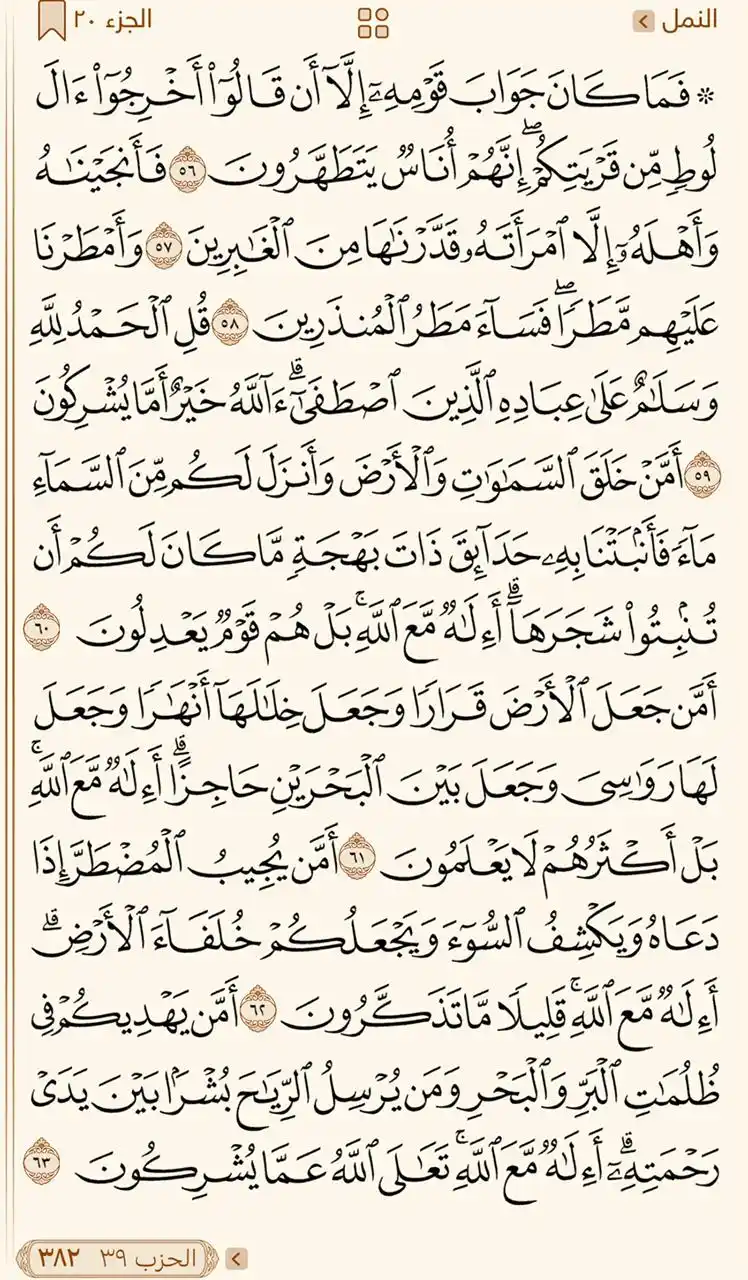 النمل
الجزء ٢٠
۞ فَمَا كَانَ جَوَابَ قَوْمِهِۦٓ إِلَّآ أَن قَالُوٓا۟ أَخْرِجُوٓا۟ ءَالَ
لُوطٍ مِّن قَرْيَتِكُمْ ۖ إِنَّهُمْ أُنَاسٌ يَتَطَهَّرُونَ ٥٦ فَأَنجَيْنَـٰهُ
وَأَهْلَهُۥٓ إِلَّا ٱمْرَأَتَهُۥ قَدَّرْنَـٰهَا مِنَ ٱلْغَـٰبِرِينَ ٥٧ وَأَمْطَرْنَا
عَلَيْهِم مَّطَرًا ۖ فَسَآءَ مَطَرُ ٱلْمُنذَرِينَ ٥٨ قُلِ ٱلْحَمْدُ لِلَّهِ
وَسَلَـٰمٌ عَلَىٰ عِبَادِهِ ٱلَّذِينَ ٱصْطَفَىٰٓ ۗ ءَآللَّهُ خَيْرٌ أَمَّا يُشْرِكُونَ
٥٩ أَمَّنْ خَلَقَ ٱلسَّمَـٰوَٰتِ وَٱلْأَرْضَ وَأَنزَلَ لَكُم مِّنَ ٱلسَّمَآءِ
مَآءً فَأَنۢبَتْنَا بِهِۦ حَدَآئِقَ ذَاتَ بَهْجَةٍ مَّا كَانَ لَكُمْ أَن
تُنۢبِتُوا۟ شَجَرَهَآ ۗ أَءِلَـٰهٌ مَّعَ ٱللَّهِ ۚ بَلْ هُمْ قَوْمٌ يَعْدِلُونَ ٦٠
أَمَّن جَعَلَ ٱلْأَرْضَ قَرَارًا وَجَعَلَ خِلَـٰلَهَآ أَنْهَـٰرًا وَجَعَلَ
لَهَا رَوَٰسِىَ وَجَعَلَ بَيْنَ ٱلْبَحْرَيْنِ حَاجِزًا ۗ أَءِلَـٰهٌ مَّعَ ٱللَّهِ ۚ
بَلْ أَكْثَرُهُمْ لَا يَعْلَمُونَ ٦١ أَمَّن يُجِيبُ ٱلْمُضْطَرَّ إِذَا
دَعَاهُ وَيَكْشِفُ ٱلسُّوٓءَ وَيَجْعَلُكُمْ خُلَفَآءَ ٱلْأَرْضِ ۗ
أَءِلَـٰهٌ مَّعَ ٱللَّهِ ۚ قَلِيلًا مَّا تَذَكَّرُونَ ٦٢ أَمَّن يَهْدِيكُمْ فِى
ظُلُمَـٰتِ ٱلْبَرِّ وَٱلْبَحْرِ وَمَن يُرْسِلُ ٱلرِّيَـٰحَ بُشْرًۢا بَيْنَ يَدَىْ
رَحْمَتِهِۦٓ ۗ أَءِلَـٰهٌ مَّعَ ٱللَّهِ ۚ تَعَـٰلَى ٱللَّهُ عَمَّا يُشْرِكُونَ ٦٣
الحزب ٣٩ ٣٨٢